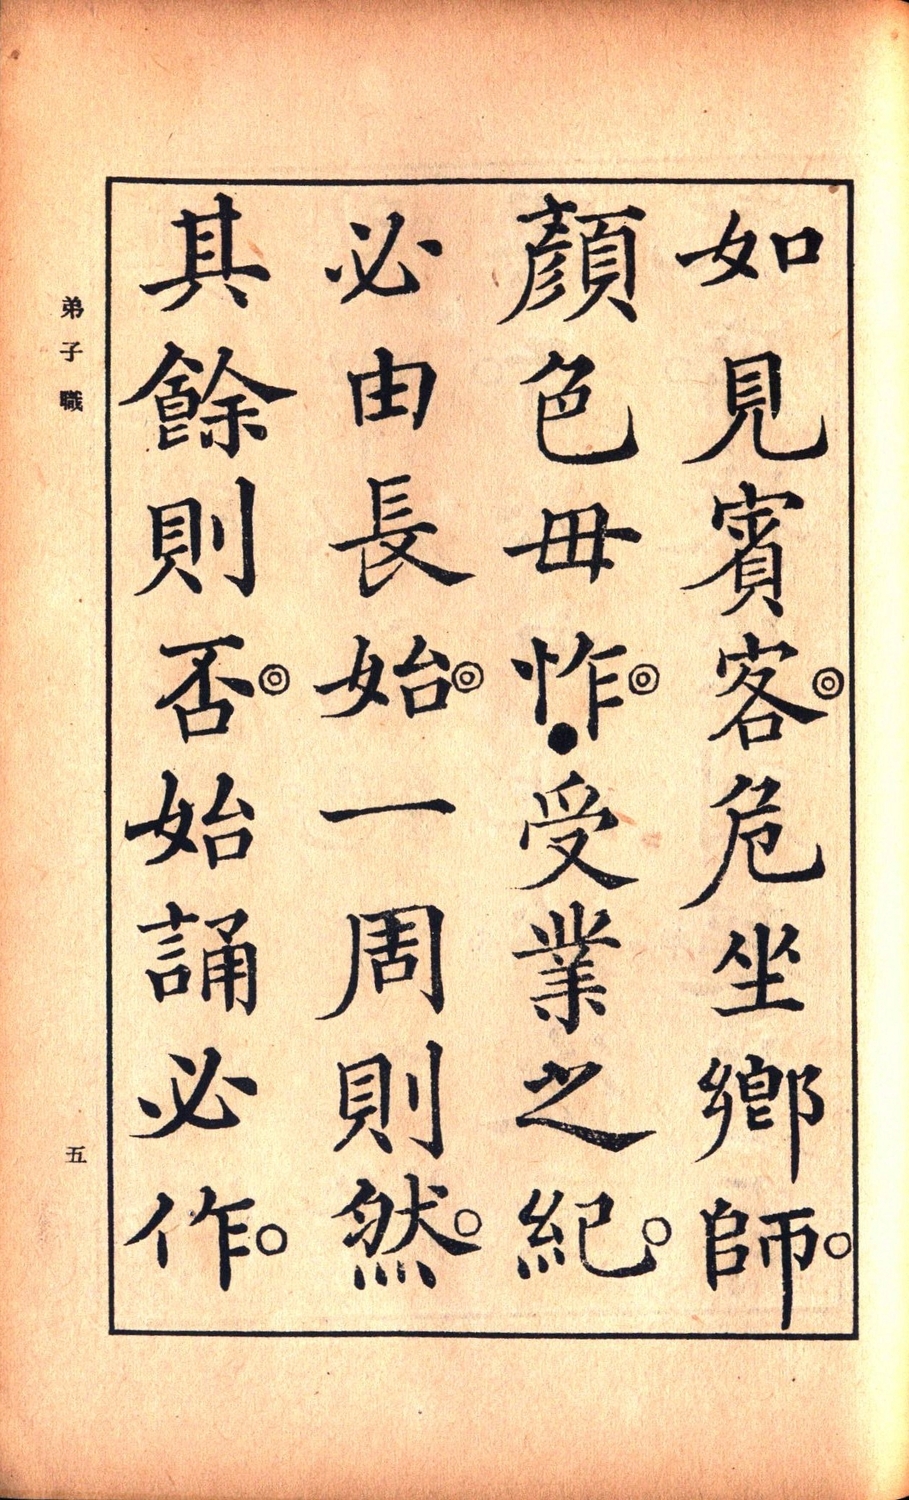 如見賓客◎危坐鄉師○
顏色毋怍◎●受業之紀○
必由長始◎一周則然○
其餘則否◎始誦必作○
弟子職
五